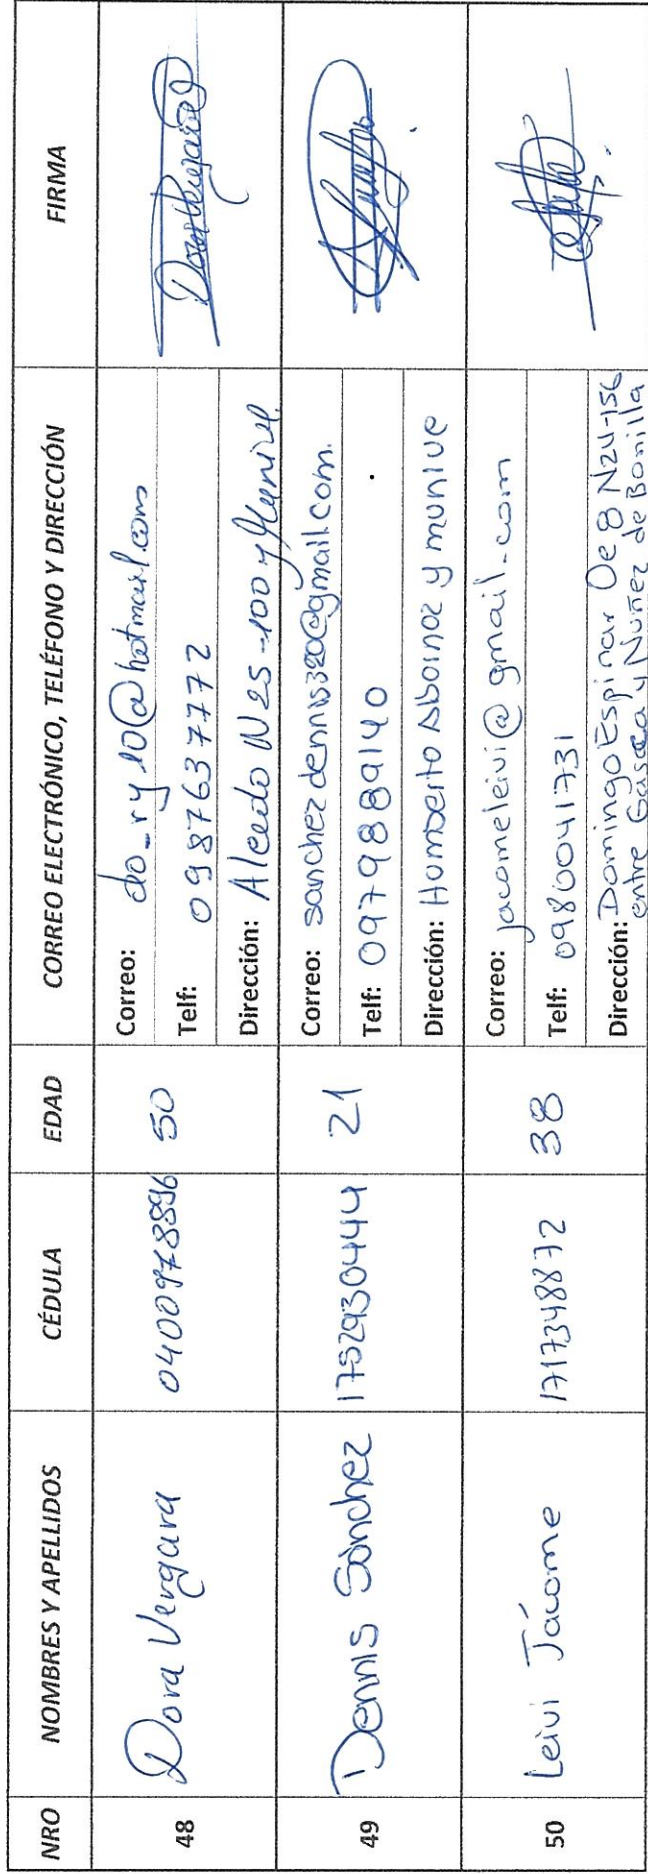 NRO NOMBRES Y APELLIDOS CÉDULA EDAD CORREO ELECTRÓNICO, TELÉFONO Y DIRECCIÓN FIRMA
48 Dora Vergara 0400978896 50
Correo: do_ry10@hotmail.com
Telf: 0987637772
Dirección: Alcedo N25-100 y Munive
49 Dennis Sánchez 1752930444 21
Correo: sanchezdennis320@gmail.com.
Telf: 0979889140
Dirección: Humberto Albornoz y munive
50 Leivi Jácome 1717348872 38
Correo: jacomeleivi@gmail.com
Telf: 0980041731
Dirección: Domingo Espinar Oe8 N24-156
entre Gasca y Nuñez de Bonilla